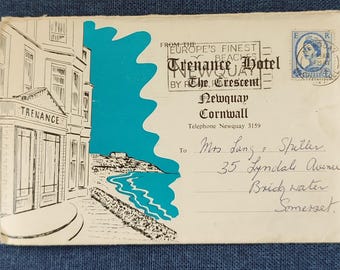 TRENANCE
FROM THE
Trenance Hotel
The Crescent
Newquay
Cornwall
Telephone Newquay 3159
EUROPE'S FINEST
BEACHES
NEWQUAY
BY
To Mrs Lang &
35 Lyndale Avenue
Bridgwater
Somerset.